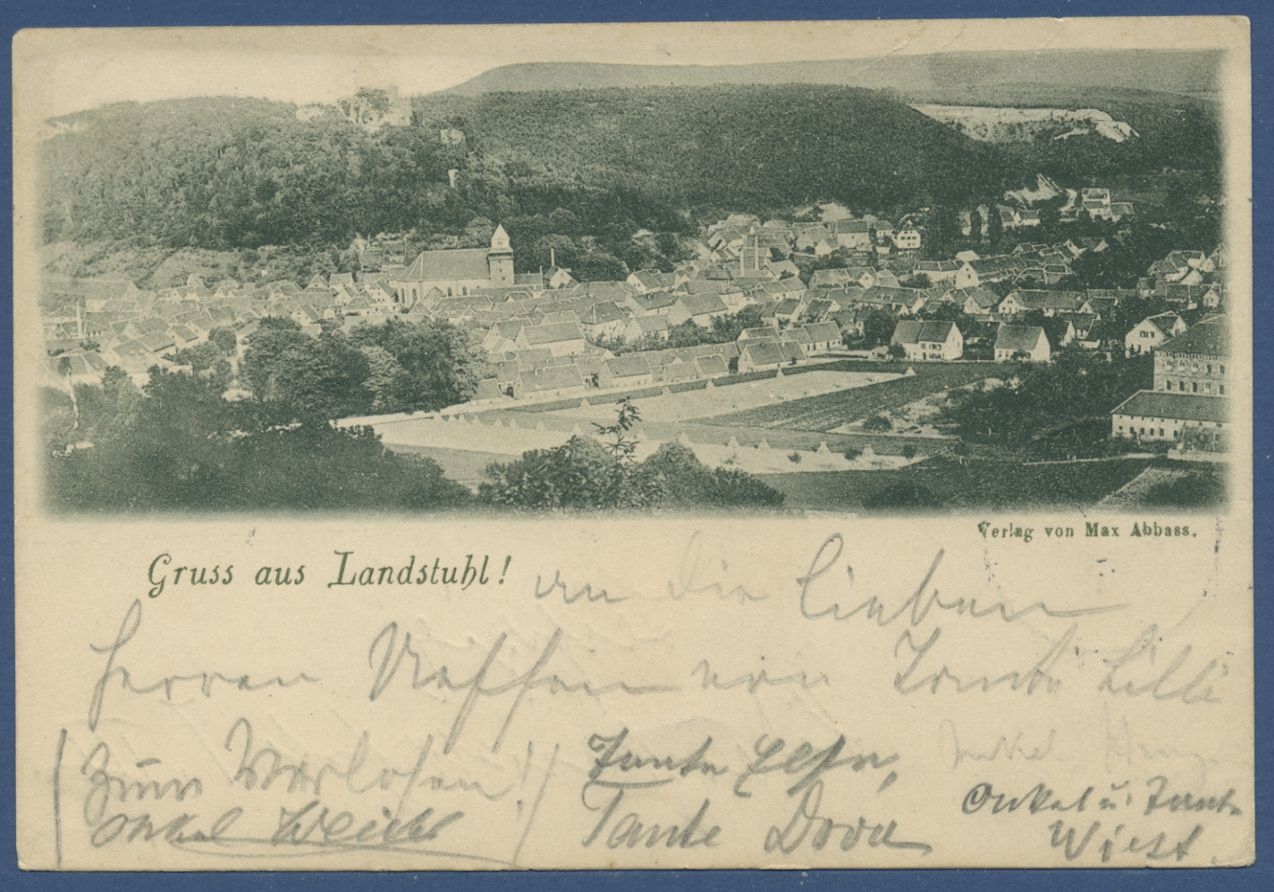 Verlag von Max Abbass.
Gruss aus Landstuhl!
an die lieben
Herren Neffen von Tante Lilli
(zum Verlosen!)
Tante Elsa,
Onkel
Onkel
Tante Dora
Onkel u. Tante
Wiest.